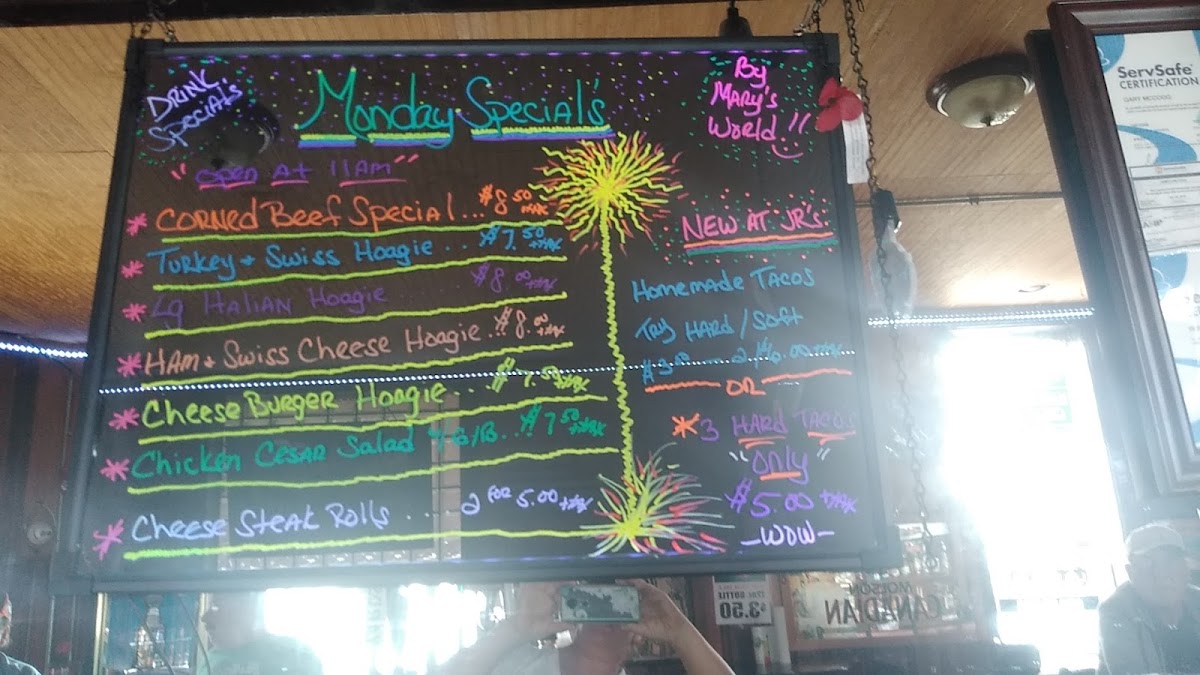 DRINK
SPECIALS
Monday Special's
By
MARY'S
World!!
"Open At 11AM"
* CORNED Beef Special... $8.50 +tax
* Turkey + Swiss Hoagie... $7.50 +tax
* Lg ITALIAN Hoagie $8.00 +tax
* HAM + Swiss Cheese Hoagie... $8.00 +tax
* Cheese Burger Hoagie... $7.50 +tax
* Chicken CESAR Salad $7.50 +tax
* Cheese Steak Rolls.... 2 FOR 5.00 +tax
NEW AT JR's
Homemade TACOS
Try HARD/Soft
OR
* 3 HARD TACOS
"Only"
$5.00 +tax
-WOW-
ServSafe
CERTIFICATION
$3.50
MOLSON
CANADIAN